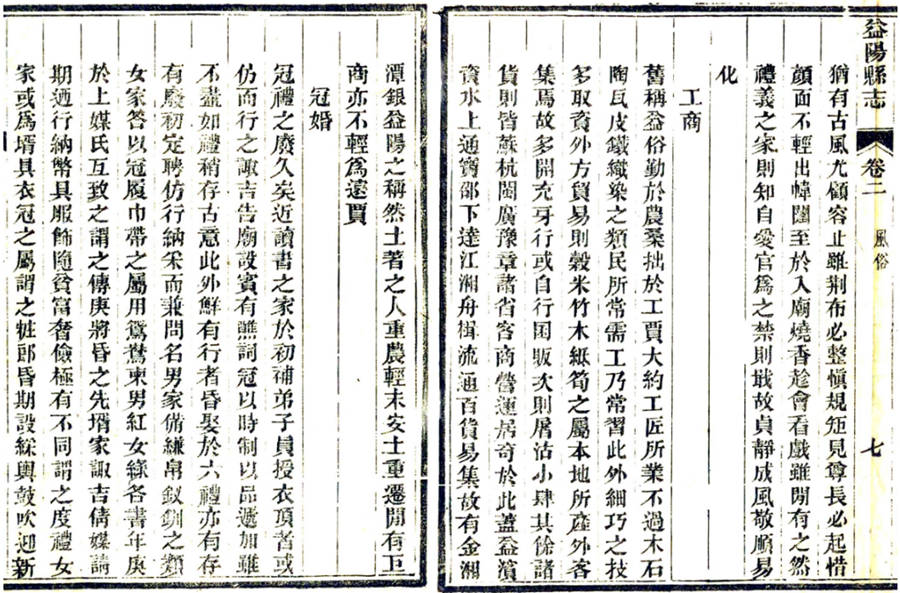 益陽縣志
卷二
風俗
七
猶有古風尤顧容止雖荆布必整愼規矩見尊長必起惜
顔面不輕出幃闥至於入廟燒香趁會看戲雖閒有之然
禮義之家則知自愛官爲之禁則戢故貞靜成風敬順易
化
工商
舊稱益俗勤於農桑拙於工賈大約工匠所業不過木石
陶瓦皮鐵織染之類民所常需工乃常習此外細巧之技
多取資外方貿易則穀米竹木紙筍之屬本地所產外客
集焉故多開充牙行或自行囤販次則屠沽小肆其餘諸
貨則皆蘇杭閩廣豫章諸省客商營運居奇於此蓋益濱
資水上通寶邵下達江湘舟揖流通百貨易集故有金湘
潭銀益陽之稱然土著之人重農輕末安土重遷閒有巨
商亦不輕爲遠賈
冠婚
冠禮之廢久矣近讀書之家於初補弟子員授衣頂者或
仿而行之諏吉告廟設賓有醮詞冠以時制以品遞加雖
不盡如禮稍存古意此外鮮有行者昏娶於六禮亦有存
有廢初定聘仿行納采而兼問名男家備縑帛釵釧之類
女家答以冠履巾帶之屬用鴛鴦柬男紅女綠各書年庚
於上媒氏互致之謂之傳庚將昏之先壻家諏吉倩媒請
期迺行納幣具服飾隨貧富奢儉極有不同謂之度禮女
家或爲壻具衣冠之屬謂之粧郎昏期設綵輿鼓吹迎新